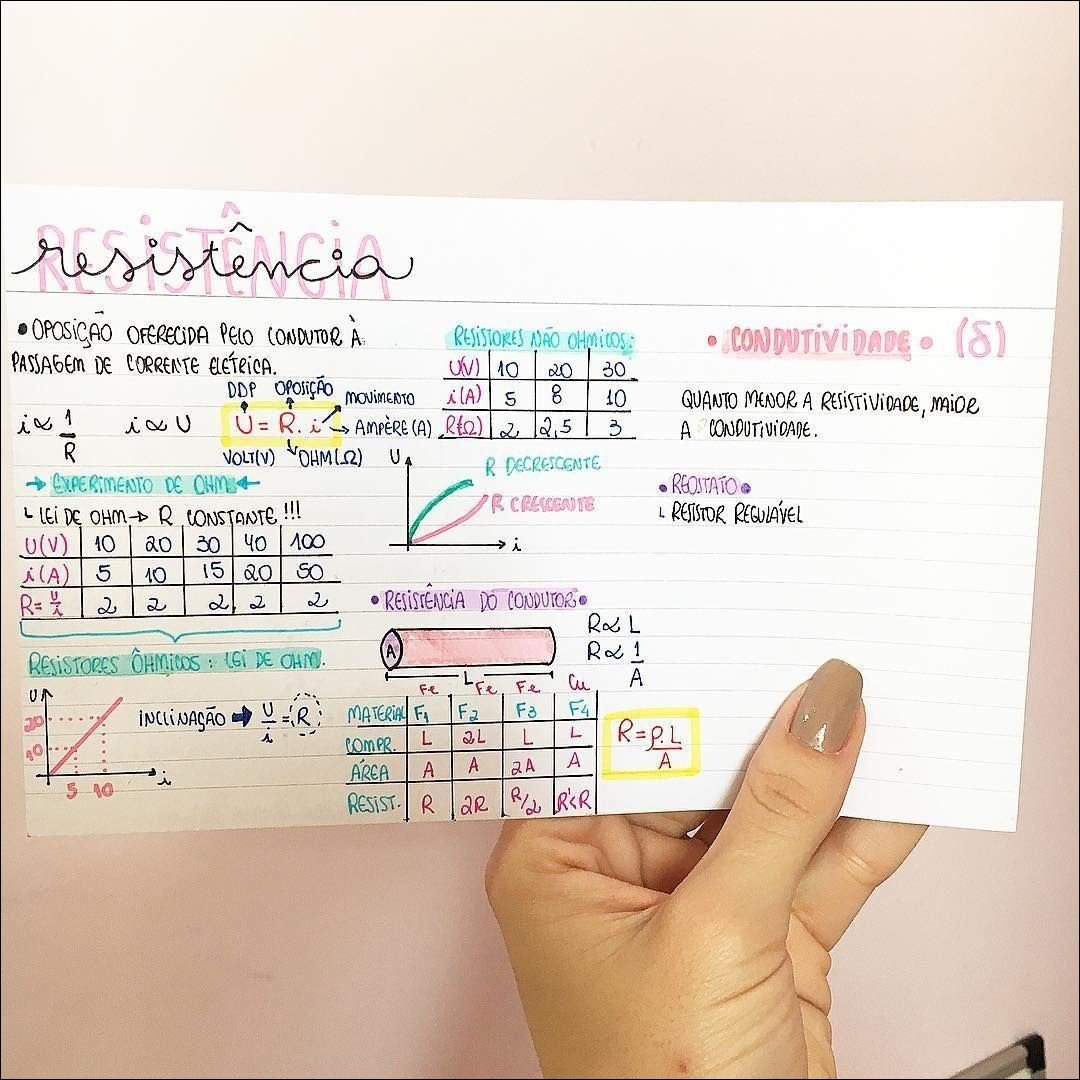 RESISTÊNCIA
resistência
• OPOSIÇÃO OFERECIDA PELO CONDUTOR À
PASSAGEM DE CORRENTE ELÉTRICA.
i ∝ 1/R i ∝ U
DDP OPOSIÇÃO
MOVIMENTO
U = R. i
AMPÈRE (A)
VOLT(V) OHM (Ω)
→ EXPERIMENTO DE OHM ←
└ LEI DE OHM → R CONSTANTE !!!
U(V) 10 20 30 40 100
i(A) 5 10 15 20 50
R= U/i 2 2 2 2 2
RESISTORES ÔHMICOS: LEI DE OHM.
U
20
10
5 10
i
INCLINAÇÃO ➡ U/i = R
RESISTORES NÃO OHMICOS:
U(V) 10 20 30
i(A) 5 8 10
R(Ω) 2 2,5 3
U
R DECRESCENTE
R CRESCENTE
i
• RESISTÊNCIA DO CONDUTOR •
A
L
R ∝ L
R ∝ 1/A
Fe Fe Fe Cu
MATERIAL F1 F2 F3 F4
COMPR. L 2L L L
ÁREA A A 2A A
RESIST. R 2R R/2 R'<R
R = ρ.L/A
• CONDUTIVIDADE • (δ)
QUANTO MENOR A RESISTIVIDADE, MAIOR
A CONDUTIVIDADE.
• REOSTATO •
└ RESISTOR REGULÁVEL